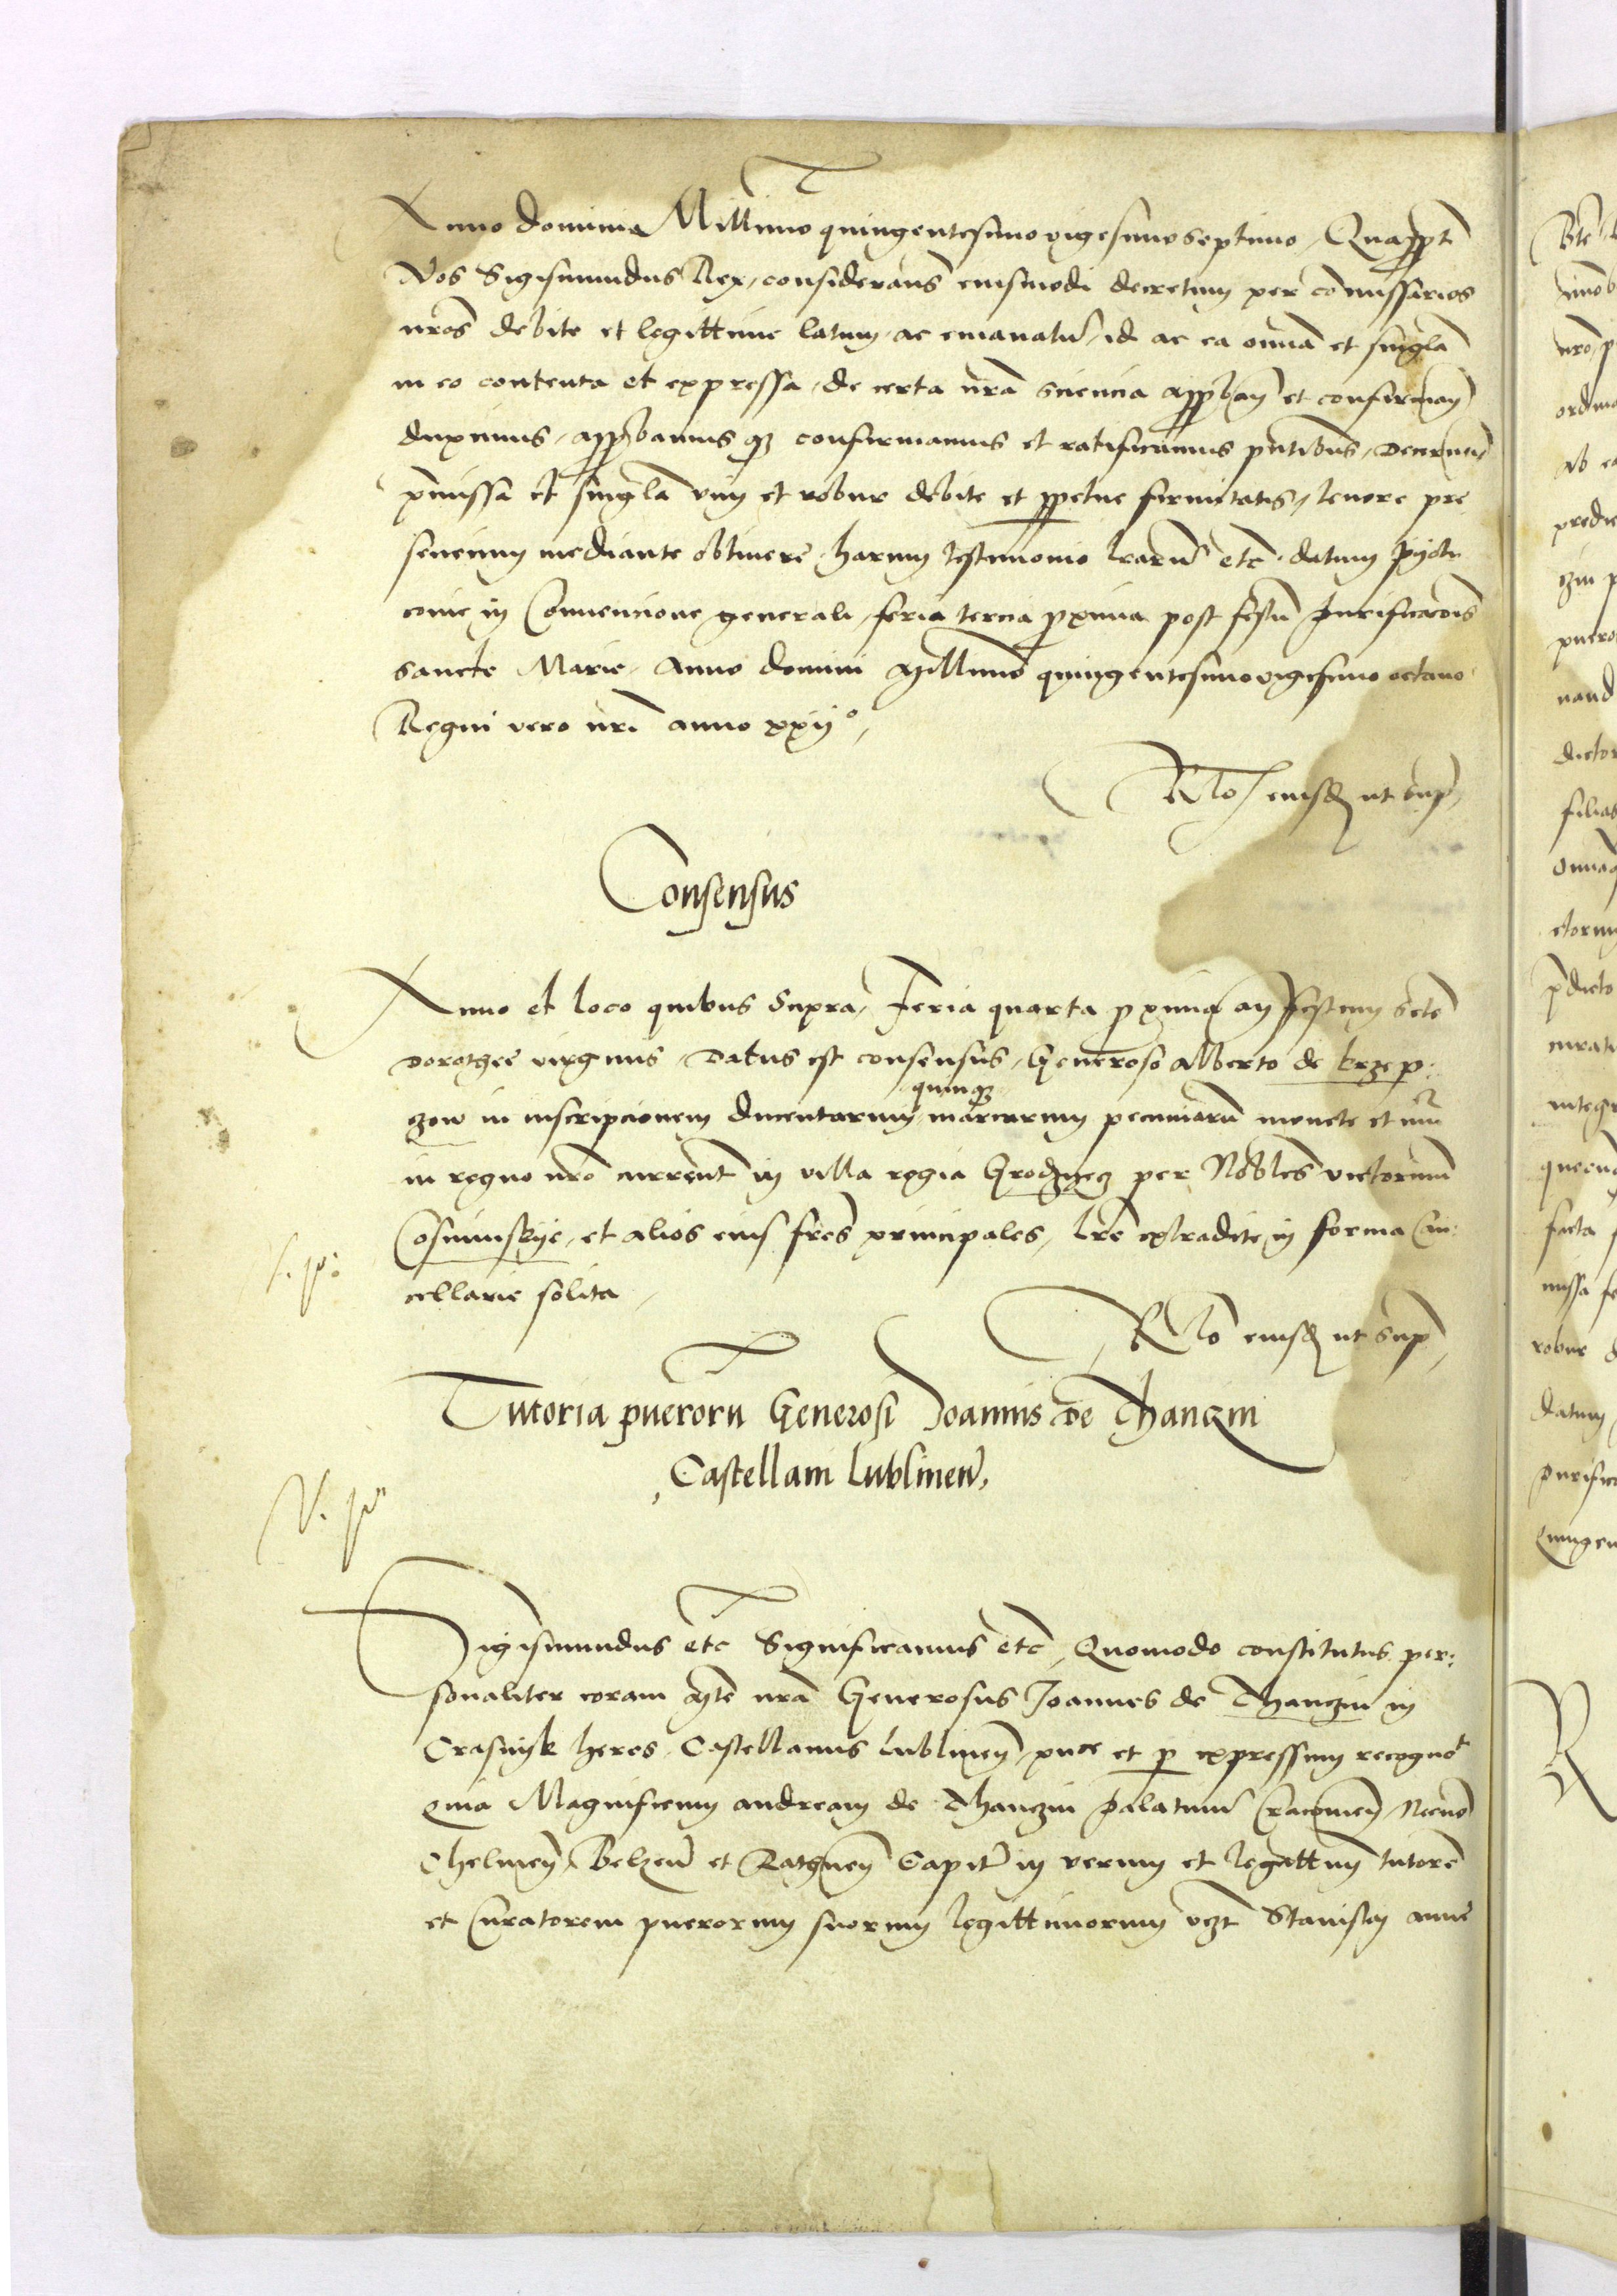 Anno domini Millimo quingentesimo vigesimoseptimo, Quappt
Nos Sigismundus Rex, considerans eiusmodi decretum per comissarios
nros debite et legittime latum, ac emanatu, id ac ea omia et singla
in eo contenta et expressa, de certa nra sciencia approban et confirman
duximus, approbamus qz confirmamus et ratificamus pntibus, Decernen
pmissa et singla vim et robur debite et ppetue firmitatis, tenore pre
sencium mediante obtinere, harum testimonio lraru etc. datum Pyotr
covie in Convencione generali, feria tercia pxima post festu purificacois
sancte Marie, Anno domini Millimo quingentesimovigesimo octavo
Regni vero nri anno xxijº,
Rlo eiusd ut sup
Consensus
Anno et loco quibus Supra, Feria quarta pxima an Festum scte
Dorothee virginis, Datus est consensus, Generoso Alberto de krzep:
zow in inscripcionem ducentarum quinqz marcarum pecuniaru monete et nui
in regno nro current in villa regia Grodzyecz per Nobles victorinu
Cosminskye, et alios eius fres principales, lre extradite in forma Can:
cellarie solita,
Rlo eiusd ut sup
Tutoria pueroru Generosi Joannis de Thanczin
Castellani Lublinen,
Sigismundus etc Significamus etc, Quomodo constitutus per:
sonaliter coram Mte nra Generosus Joannes de Thanczin in
Crasnyk heres, Castellanus Lublinen, puce et p expressum recognot
quia Magnificum andream de Thanczin palatinu Cracovien, Necno
Chelmen, Belzen et Rathnen Capit in verum et legittum tutore
et Curatorem puerorum suorum legittimorum vzt Stanislai anne